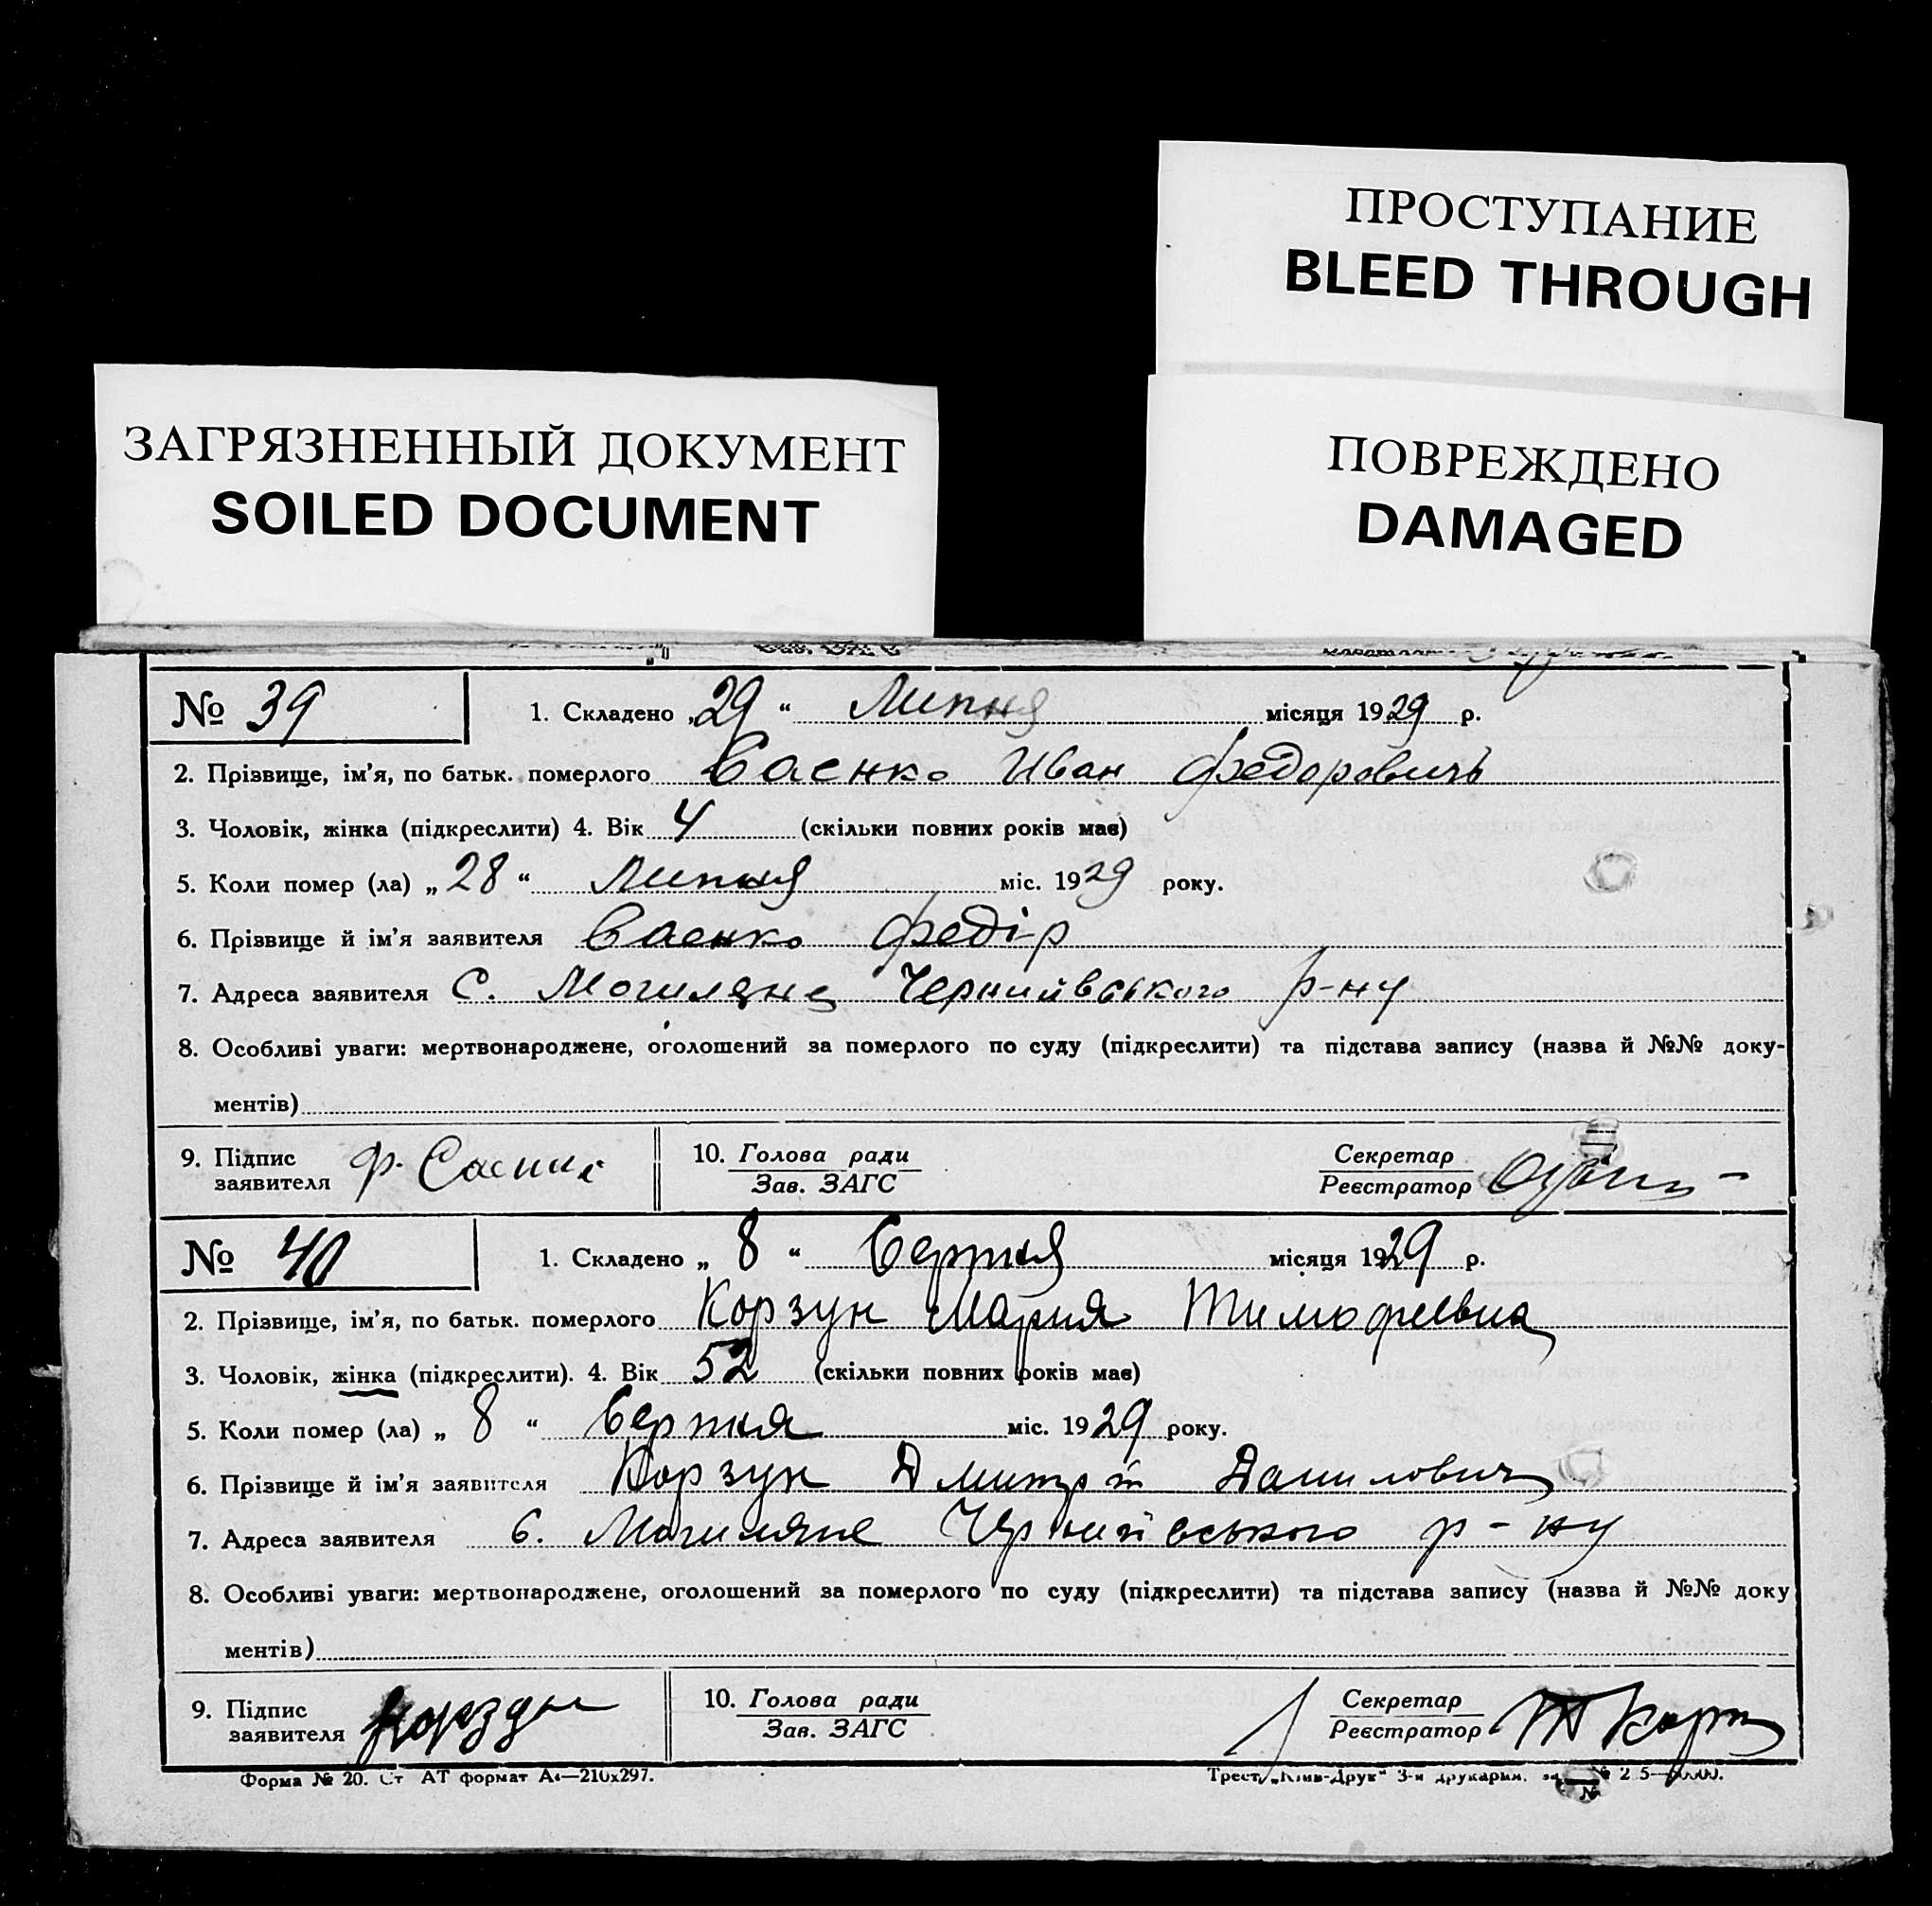 ПРОСТУПАНИЕ
BLEED THROUGH
ЗАГРЯЗНЕННЫЙ ДОКУМЕНТ
SOILED DOCUMENT
ПОВРЕЖДЕНО
DAMAGED
№ 39 1. Складено „29“ Липня місяця 1929 р.
2. Прізвище, ім’я, по батьк. померлого Саенко Иван Федоровичь
3. Чоловік, жінка (підкреслити) 4. Вік 4 (скільки повних років має)
5. Коли помер (ла) „28“ Липня міс. 1929 року.
6. Прізвище й ім’я заявителя Саенко Федір
7. Адреса заявителя С. Могиляне Черниівського р-ну
8. Особливі уваги: мертвонароджене, оголошений за померлого по суду (підкреслити) та підстава запису (назва й №№ доку-
ментів)
9. Підпис заявителя Ф. Саенко 10. Голова ради Зав. ЗАГС Секретар Реєстратор
№ 40 1. Складено „8“ Серпня місяця 1929 р.
2. Прізвище, ім’я, по батьк. померлого Корзун Мария Тимофеевна
3. Чоловік, жінка (підкреслити). 4. Вік 52 (скільки повних років має)
5. Коли помер (ла) „8“ Серпня міс. 1929 року.
6. Прізвище й ім’я заявителя Корзун Дмитрій Данилович
7. Адреса заявителя С. Могиляне Черниївського р-ну
8. Особливі уваги: мертвонароджене, оголошений за померлого по суду (підкреслити) та підстава запису (назва й №№ доку
ментів)
9. Підпис заявителя Корзун 10. Голова ради Зав. ЗАГС Секретар Реєстратор
Форма № 20. Ст АТ формат А4—210х297. Трест „Київ-Друк“ 3-я друкарня.